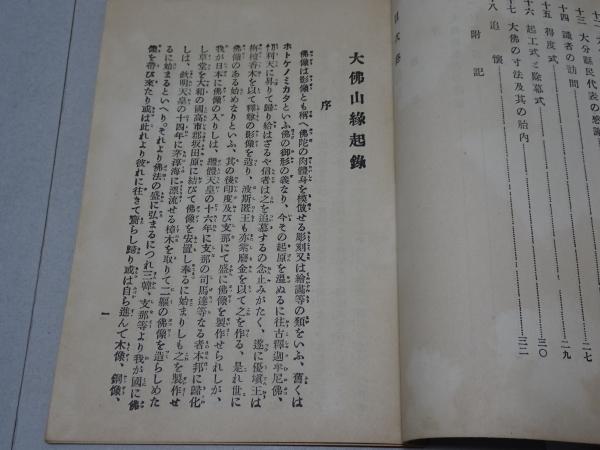 十三 大分縣民代表の感謝
十四 識者の訪問 二七
十五 得度式 二九
十六 起工式と除幕式 三〇
十七 大佛の寸法及其の胎内 三二
十八 追懷
附記
大佛山緣起錄
序
佛像は影像とも稱へ佛陀の肉體身を模倣せる彫刻又は繪畫等の類をいふ、舊くは
ホトケノミカタといふ佛の御形の義なり、今その起原を溫ぬるに往古釋迦牟尼佛、
忉利天に昇りて歸り給はざるや信者は之を追慕するの念止みがたく、遂に優塡王は
栴檀香木を以て釋尊の影像を造り、波斯匿王も亦紫磨金を以て之を作る、是れ世に
佛像のある始めなりといふ、其の後印度及び支那にて盛に佛像を製作せられしが、
我が日本に佛像の入りしは、繼體天皇の十六年に支那の司馬達等なる者本邦に歸化
し草堂を大和の國高市郡坂田原に結びて佛像を安置し奉るに始まりしも之を製作せ
しは、欽明天皇の十四年に茅渟海に漂流せる樟木を取りて二軀の佛像を造らしめた
るに始まるといへり。それより佛法の盛に弘まるにつれ三韓、支那等より我が國に佛
像を帶び來たり或は此れより彼れに往きて齎らし歸り或は自ら進んで木像、銅像、
一